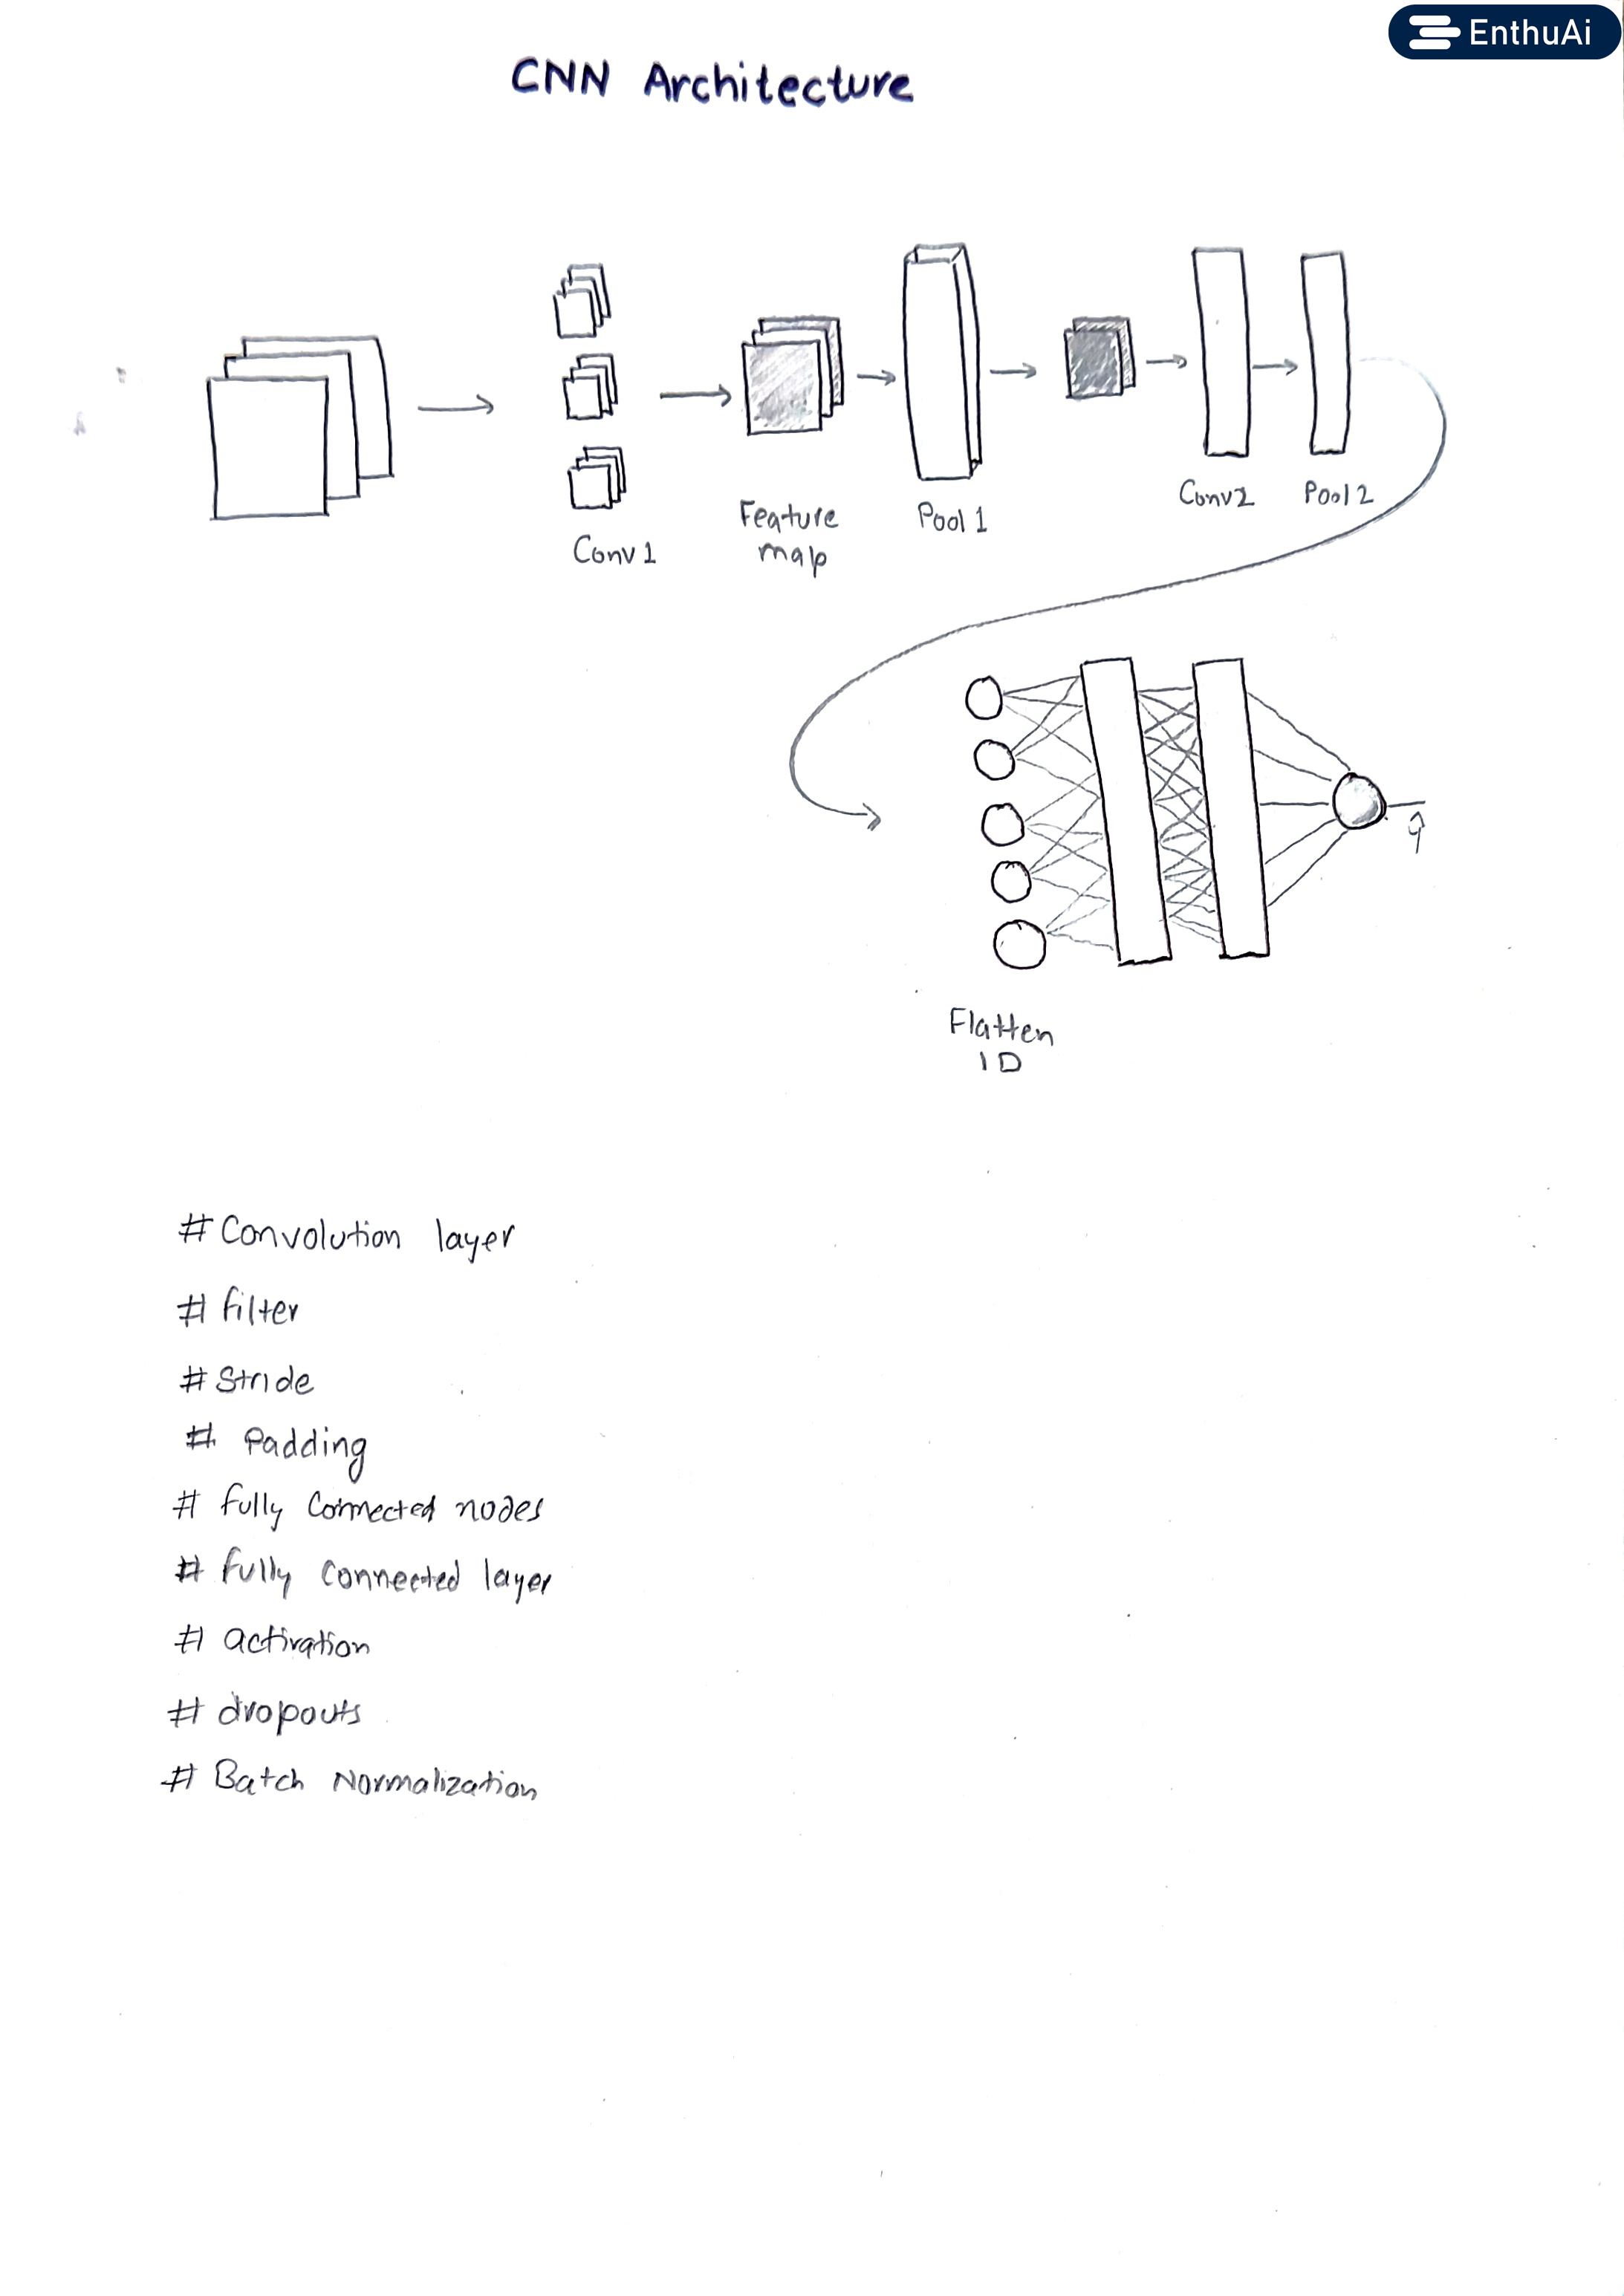 EnthuAi
CNN Architecture
Conv 1
Feature
map
Pool 1
Conv2
Pool 2
ŷ
Flatten
1D
# Convolution layer
# filter
# Stride
# Padding
# fully connected nodes
# fully connected layer
# activation
# dropouts
# Batch Normalization